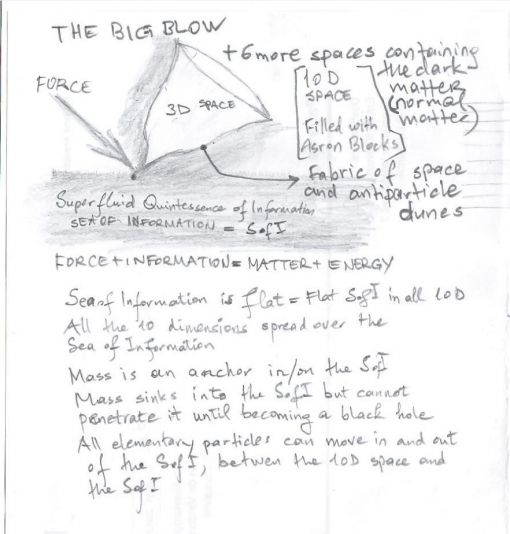 THE BIG BLOW
+6 more spaces containing
the dark
matter
(normal
matter)
10D
SPACE
Filled with
Asron Blocks
FORCE
3D SPACE
Fabric of space
and antiparticle
dunes
Superfluid Quintessence of Information
SEA OF INFORMATION = SofI
FORCE + INFORMATION = MATTER + ENERGY
Sea of Information is flat = Flat SofI in all 10D
All the 10 dimensions spread over the
Sea of Information
Mass is an anchor in/on the SofI
Mass sinks into the SofI but cannot
penetrate it until becoming a black hole
All elementary particles can move in and out
of the SofI, betwen the 10D space and
the SofI